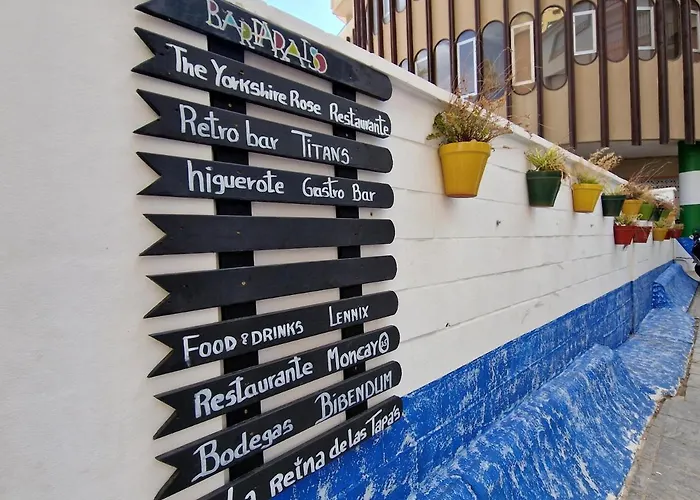 BARPARAISO
The Yorkshire Rose Restaurante
Retro bar TITANS
higuerote Gastro Bar
FOOD & DRINKS LENNIX
Restaurante MONCAYO
Bodegas BIBENDUM
La Reina de las Tapas